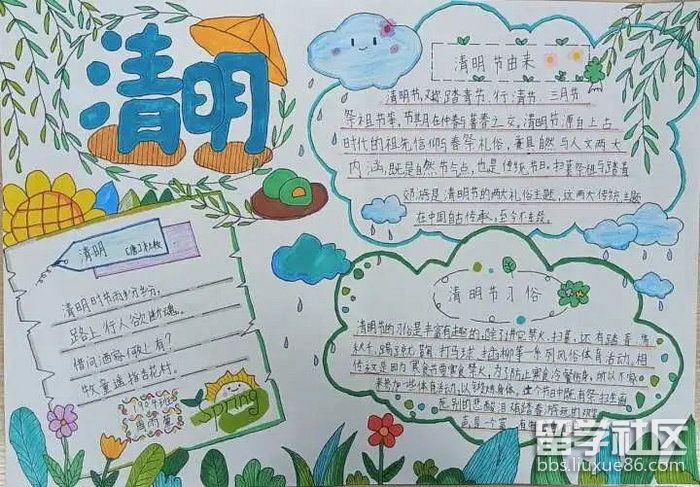 清明
清明节由来
清明节,又称踏青节、行清节、三月节
祭祖节等,节期在仲春与暮春之交,清明节源自上古
时代的祖先信仰与春祭礼俗,兼具自然与人文两大
内涵,既是自然节气点,也是传统节日,扫墓祭祖与踏青
郊游是清明节的两大礼俗主题,这两大传统主题
在中国自古传承,至今不
清明 [唐]杜牧
清明时节雨纷纷,
路上行人欲断魂。
借问酒家何处有?
牧童遥指杏花村。
spring
清明节习俗
清明节的习俗是丰富有趣的,除了讲究禁火、扫墓,还有踏青、荡
秋千、蹴鞠、打马球、插柳等一系列风俗体育活动,相
传这是因为寒食节要寒食禁火,为了防止寒食冷餐伤身,所以
来参加一些体育活动,以锻炼身体,这个节日中既有祭扫
死别的悲酸泪
留学社区
bbs.liuxue86.com